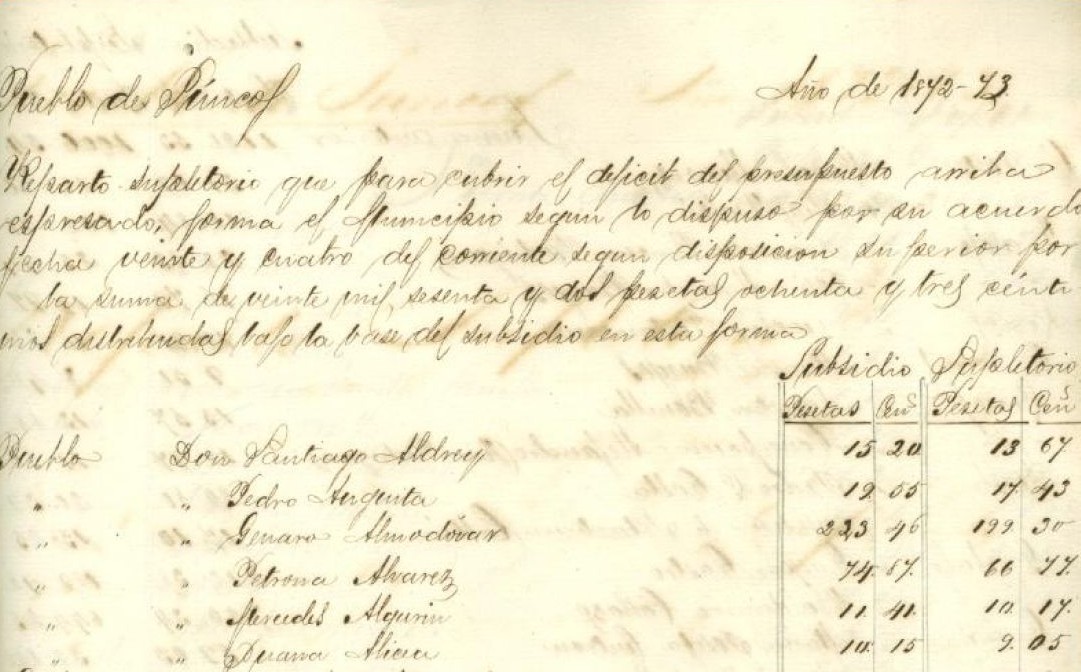 Pueblo de Júncos Año de 1872-73
Reparto supletorio que para cubrir el deficit del presupuesto arriba
espresado, forma el Municipio segun lo dispuso por su acuerdo
fecha veinte y cuatro del corriente segun disposicion superior por
la suma de veinte mil, sesenta y dos pesetas ochenta y tres cénti
mos distribuidas bajo la base del subsidio en esta forma
Subsidio Supletorio
Pesetas Cens Pesetas Cen
Pueblo Don Santiago Aldrey 15 20 13 67
" " Pedro Angueita 19. 55 17. 43
" " Genaro Almodóvar 223 46 199 30
" " Petrona Alvarez 74. 87. 66 77.
" " Mercedes Algarin 11. 41. 10. 17.
" " Alicea 10. 15 9. 05